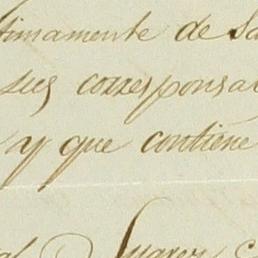 timamente de Sa
sus corresponsa
y que contiene